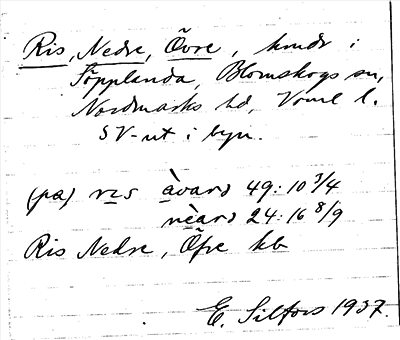 Ris, Nedre, Övre, hmdr i
Töpplanda, Blomskogs sn,
Nordmarks hd, Vrml l.
SV-ut i byn.
(på) ris àvarɔ 49:10 3/4
nèarɔ 24:16 8/9
Ris Nedre, Öfre kb
E. Silfors 1937.